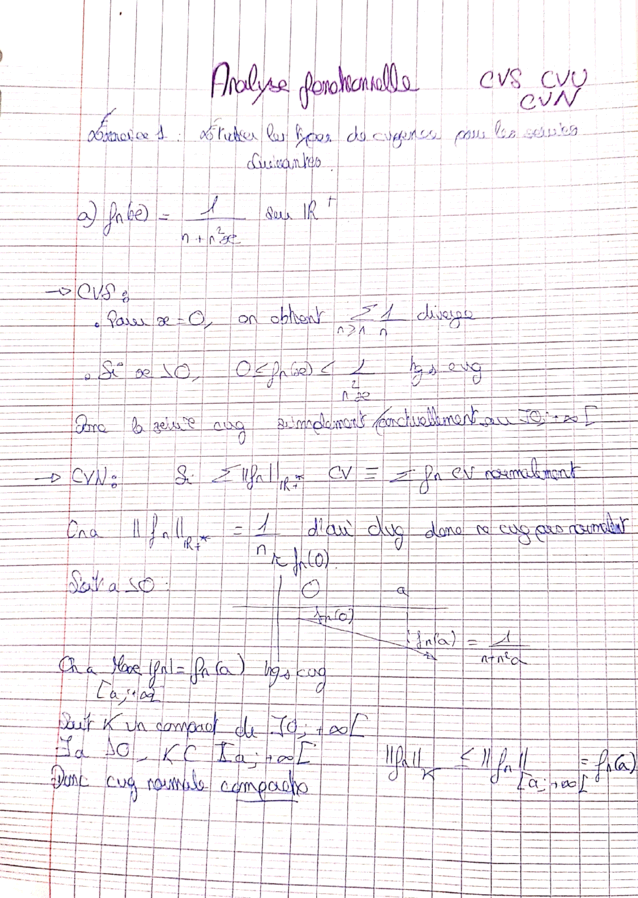 Analyse fonctionnelle CVS CVU
CVN
Exercice 1 : Etudier les types de cvgence pour les séries
suivantes.
a) fn(x) = 1 / (n + n²x) sur IR⁺
→ CVS :
• Pour x = 0, on obtient Σ n≥1 1/n diverge
• Si x > 0, 0 ≤ fn(x) ≤ 1/(n²x) tgs cvg
Donc la série cvg simplement / ponctuellement sur ]0; +∞[
→ CVN : Si Σ ||fn|| IR₊* CV ≡ Σ fn CV normalement
On a ||fn|| IR₊* = 1/n d'où dvg donc ne cvg pas normalmt
fn(0)
Soit a > 0 : 0 a
fn(0)
fn(a) = 1/(n+n²a)
On a Max |fn| = fn(a) tgs cvg
[a; +∞[
Soit K un compact de ]0; +∞[
∃a > 0, K ⊂ [a; +∞[ ||fn|| K ≤ ||fn|| [a; +∞[ = fn(a)
Donc cvg normale compacts